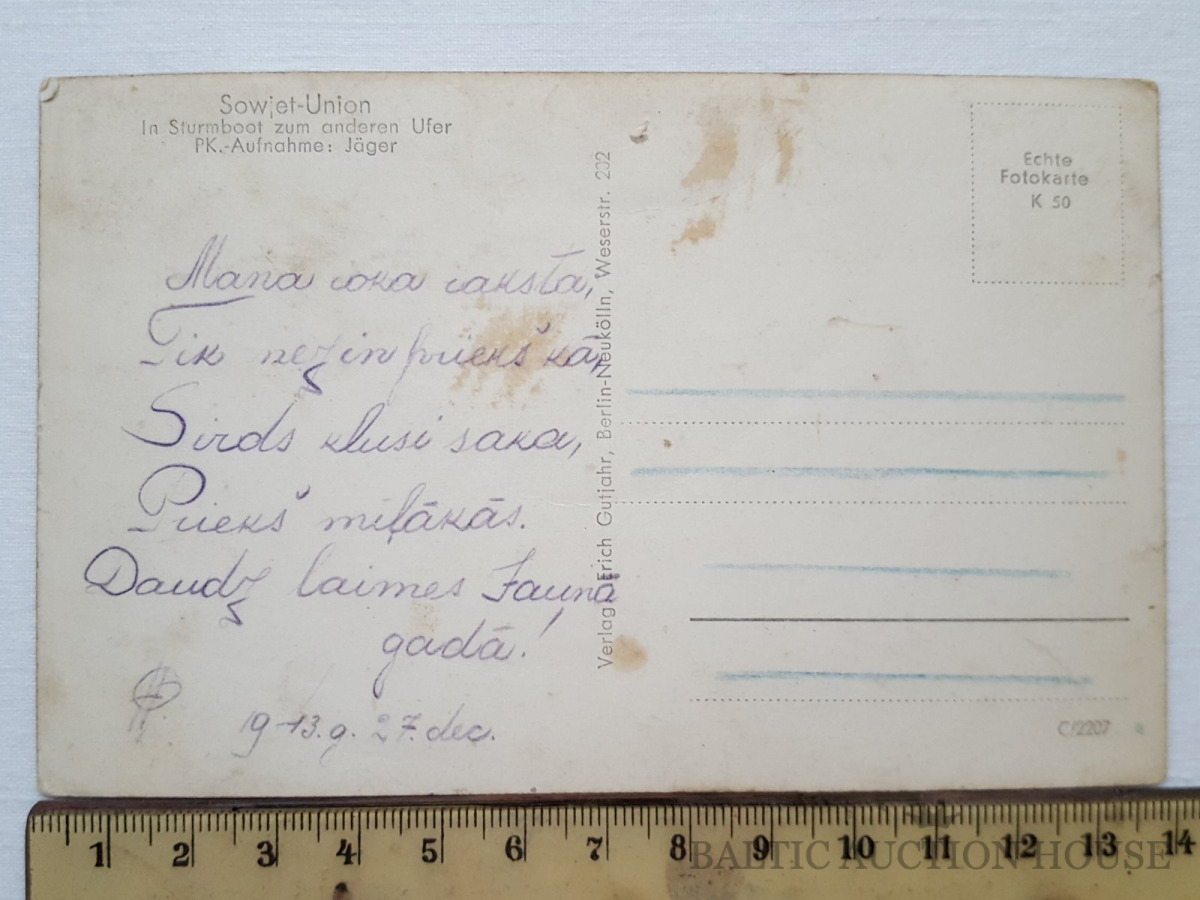 Sowjet-Union
In Sturmboot zum anderen Ufer
PK.-Aufnahme: Jäger
Mana roka raksta,
Tik nezin priekš kā,
Sirds klusi saka,
Priekš mīļākās.
Daudz laimes Jaunā
gadā!
1943.g. 27. dec.
Verlag Erich Gutjahr, Berlin-Neukölln, Weserstr. 202
Echte
Fotokarte
K 50
C/2207
1 2 3 4 5 6 7 8 9 10 11 12 13 14
BALTIC AUCTION HOUSE